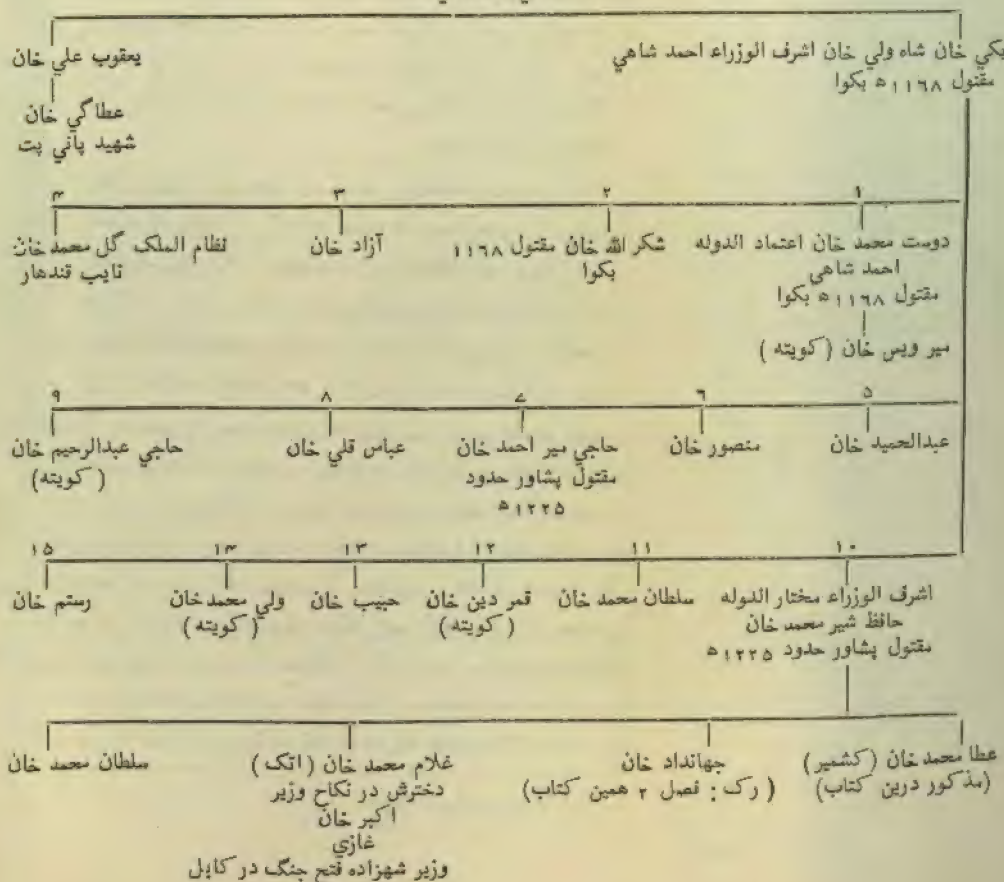 بکي خان شاه ولي خان اشرف الوزراء احمد شاهي
مقتول ١١٦٨ ه بکوا
يعقوب علي خان
عطاگي خان
شهيد پاني پت
١
دوست محمد خان اعتماد الدوله
احمد شاهي
مقتول ١١٦٨ ه بکوا
مير ويس خان (کويته)
٢
شکر الله خان مقتول ١١٦٨
بکوا
٣
آزاد خان
۴
نظام الملک گل محمد خان
نايب قندهار
۵
عبدالحميد خان
٦
منصور خان
٧
حاجي مير احمد خان
مقتول پشاور حدود
١٢٢۵ ه
٨
عباس قلي خان
٩
حاجي عبدالرحيم خان
(کويته)
١٠
اشرف الوزراء مختار الدوله
حافظ شير محمد خان
مقتول پشاور حدود ١٢٢۵ ه
١١
سلطان محمد خان
١٢
قمر دين خان
(کويته)
١٣
حبيب خان
١۴
ولي محمد خان
(کويته)
١۵
رستم خان
عطا محمد خان (کشمير)
(مذکور درين کتاب)
جهانداد خان
(رک: فصل ٢ همين کتاب)
غلام محمد خان (اتک)
دخترش در نکاح وزير
اکبر خان
غازي
وزير شهزاده فتح جنگ در کابل
سلطان محمد خان